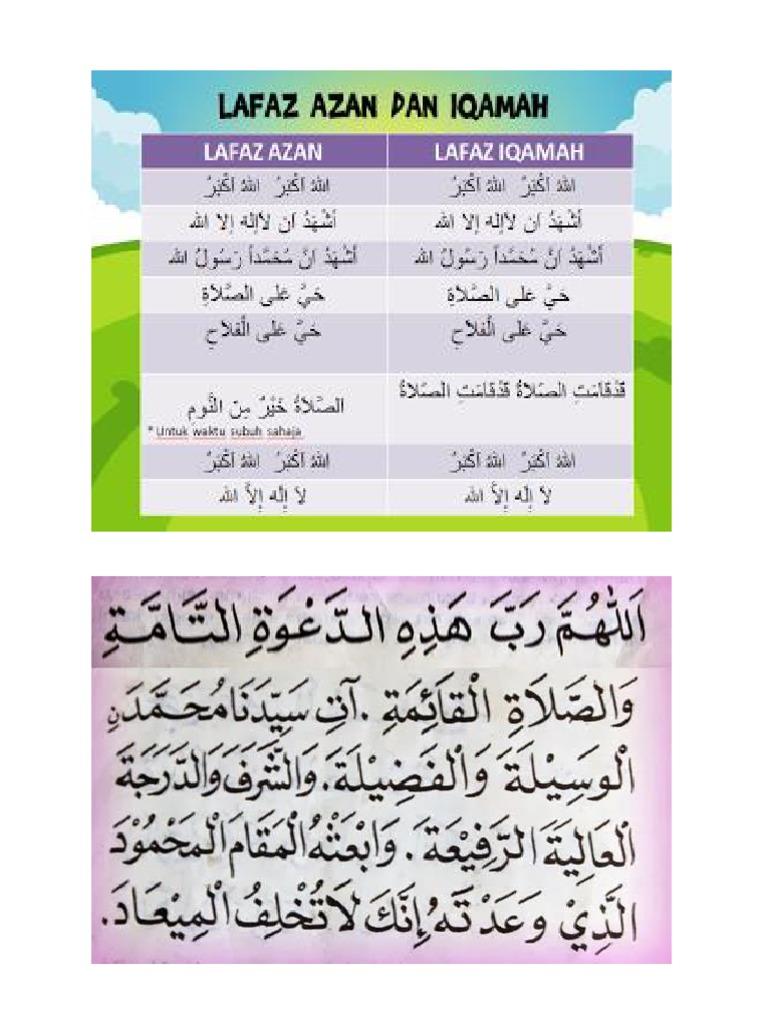 LAFAZ AZAN DAN IQAMAH
LAFAZ AZAN LAFAZ IQAMAH
اللهُ اَكْبَرُ اللهُ اَكْبَرُ اللهُ اَكْبَرُ اللهُ اَكْبَرُ
أَشْهَدُ اَن لاَإِلَه إِلا الله أَشْهَدُ اَن لاَإِلَه إِلا الله
أَشْهَدُ اَنَّ مُحَمَّداً رَسُولُ الله أَشْهَدُ اَنَّ مُحَمَّداً رَسُولُ الله
حَيَّ عَلَى الصَّلاَةِ حَيَّ عَلَى الصَّلاَةِ
حَيَّ عَلَى الْفَلاَحِ حَيَّ عَلَى الْفَلاَحِ
الصَّلاَةُ خَيْرٌ مِنَ النَّومِ قَدْقَامَتِ الصَلاَةُ قَدْقَامَتِ الصَلاَةُ
* Untuk waktu subuh sahaja
اللهُ اَكْبَرُ اللهُ اَكْبَرُ اللهُ اَكْبَرُ اللهُ اَكْبَرُ
لاَ إِلَه إِلاَّ الله لاَ إِلَه إِلاَّ الله
اَللّٰهُمَّ رَبَّ هَذِهِ الدَّعْوَةِ التَّامَّةِ
وَالصَّلَاةِ الْقَائِمَةِ. آتِ سَيِّدَنَا مُحَمَّدَنِ
الْوَسِيْلَةَ وَالْفَضِيْلَةَ. وَالشَّرَفَ وَالدَّرَجَةَ
الْعَالِيَةَ الرَّفِيْعَةَ. وَابْعَثْهُ الْمَقَامَ الْمَحْمُوْدَ
الَّذِيْ وَعَدْتَهُ إِنَّكَ لَا تُخْلِفُ الْمِيْعَادَ.